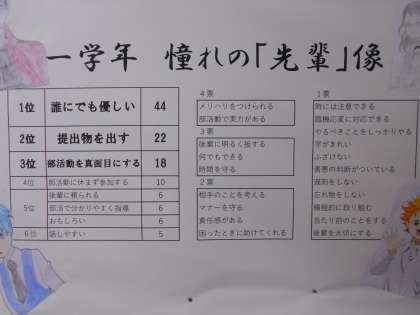 一学年 憧れの「先輩」像
1位 誰にでも優しい 44
2位 提出物を出す 22
3位 部活動を真面目にする 18
4位 部活動に休まず参加する 10
5位 後輩に頼られる 6
部活で分かりやすく指導 6
おもしろい 6
6位 話しやすい 5
4票
メリハリをつけられる
部活動で実力がある
3票
後輩に明るく接する
何でもできる
時間を守る
2票
相手のことを考える
マナーを守る
責任感がある
困ったときに助けてくれる
1票
時には注意できる
臨機応変に対応できる
やるべきことをしっかりやる
字がきれい
ふざけない
善悪の判断がついている
遅刻をしない
忘れ物をしない
積極的に取り組む
当たり前のことをする
後輩を大切にする